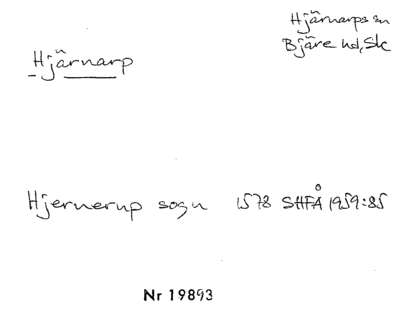 Hjärnarps sn
Bjäre hd, Sk
Hjärnarp
Hjernerup sogn 1578 SHFÅ 1959:85
Nr 19893